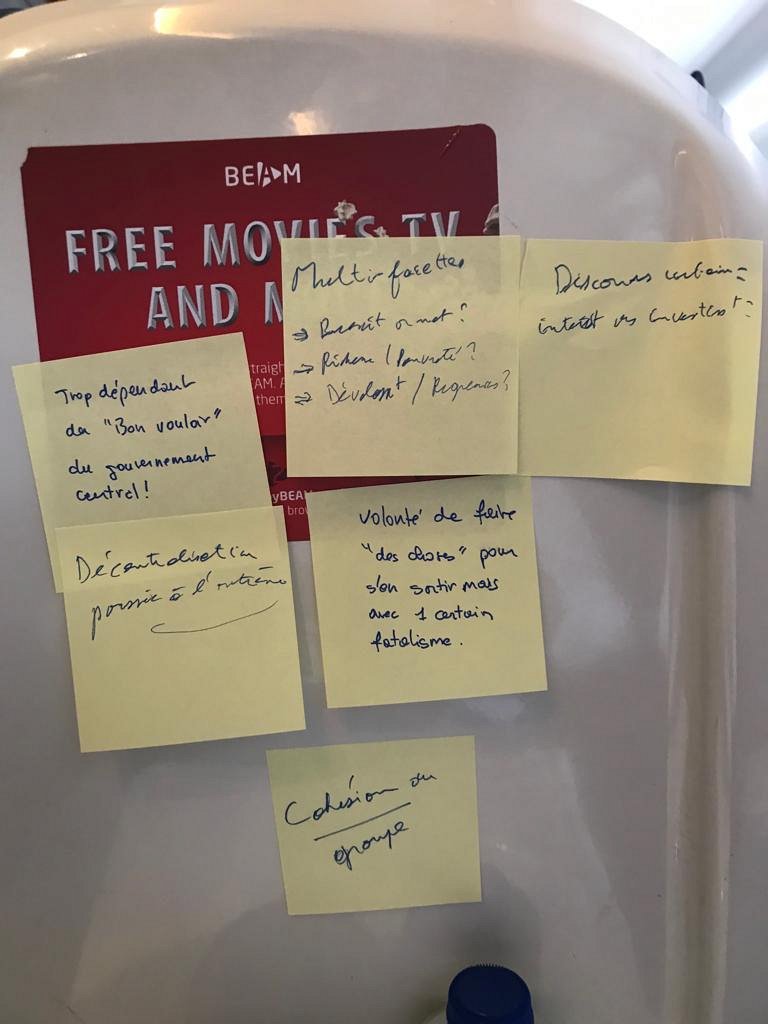 BEAM
FREE MOVIES TV
AND M
straigh
AM. A
them
yBEAM
brow
Multi facettes
⇒ ou not ?
⇒ Richesse / Pauvreté ?
⇒ Dévelopt / ?
Discours
interêt
Trop dépendant
du "Bon vouloir"
du gouvernement
central !
Décentralisation
poussée à l'extrême
volonté de faire
"des choses" pour
s'en sortir mais
avec 1 certain
fatalisme.
Cohésion du
groupe